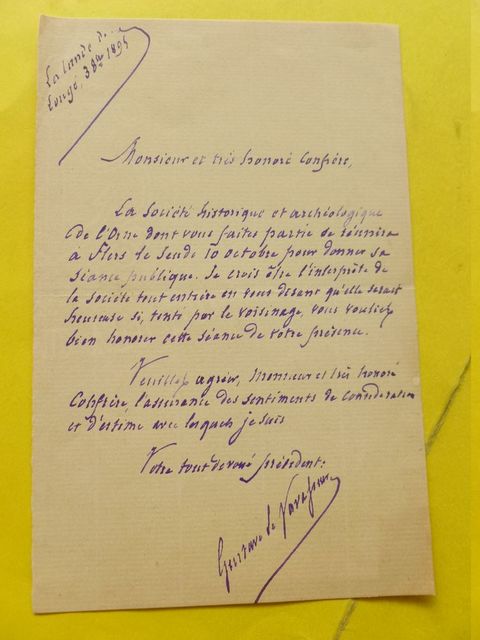 La Lande de
Lougé, 3 8bre 1895
Monsieur et très honoré Confrère,
La Société historique et archéologique
de l'Orne dont vous faites partie se réunira
à Flers le jeudi 10 octobre pour donner sa
séance publique. Je crois être l'interprète de
la Société tout entière en vous disant qu'elle serait
heureuse si, tenté par le voisinage, vous vouliez
bien honorer cette séance de votre présence.
Veuillez agréer, Monsieur et très honoré
Confrère, l'assurance des sentiments de considération
et d'estime avec lesquels je suis
Votre tout dévoué président:
Gustave Le Vavasseur